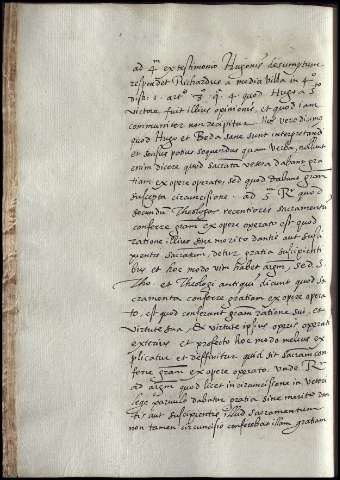 ad 4m ex testimonio Hugonis desumptum
respondet Richardus a media villa in 4o
dist. 1. arto 3o q. 4. quod Hugo a Sto
victore fuit illius opinionis, et quod iam
communiter non recipitur. Nos vero dicimus
quod Hugo et Beda sane sunt interpretandi
et sensus potius sequendus quam verba, nolunt
enim dicere quod sacramta vetera dabant gra
tiam ex opere operato, sed quod dabant gram
suscepta circuncisione. ad 5m Rr quod
secundum Theologos recentiores sacramentum
conferre gram ex opere operato est quod
ratione illius sine merito dantis aut susci
pientis sacramentum, detur gratia suscipienti
bus et hoc modo vim habet argm, sed S.
Tho. et Theologi antiqui dicunt quod sa
cramenta conferre gratiam ex opere opera
to, est quod conferunt gram ratione sui, et
virtute sua, ex virtute ipsius operis operati
exterius et profecto hoc modo melius ex
plicatur et deffinitur quid sit sacram con
ferre gram ex opere operato. unde Rr
ad argm quod licet in circuncisione in veteri
lege parvulo dabatur gratia sine merito dan
tis aut suscipientis, illud sacramentum
non tamen circuncisio conferebat illam gratiam